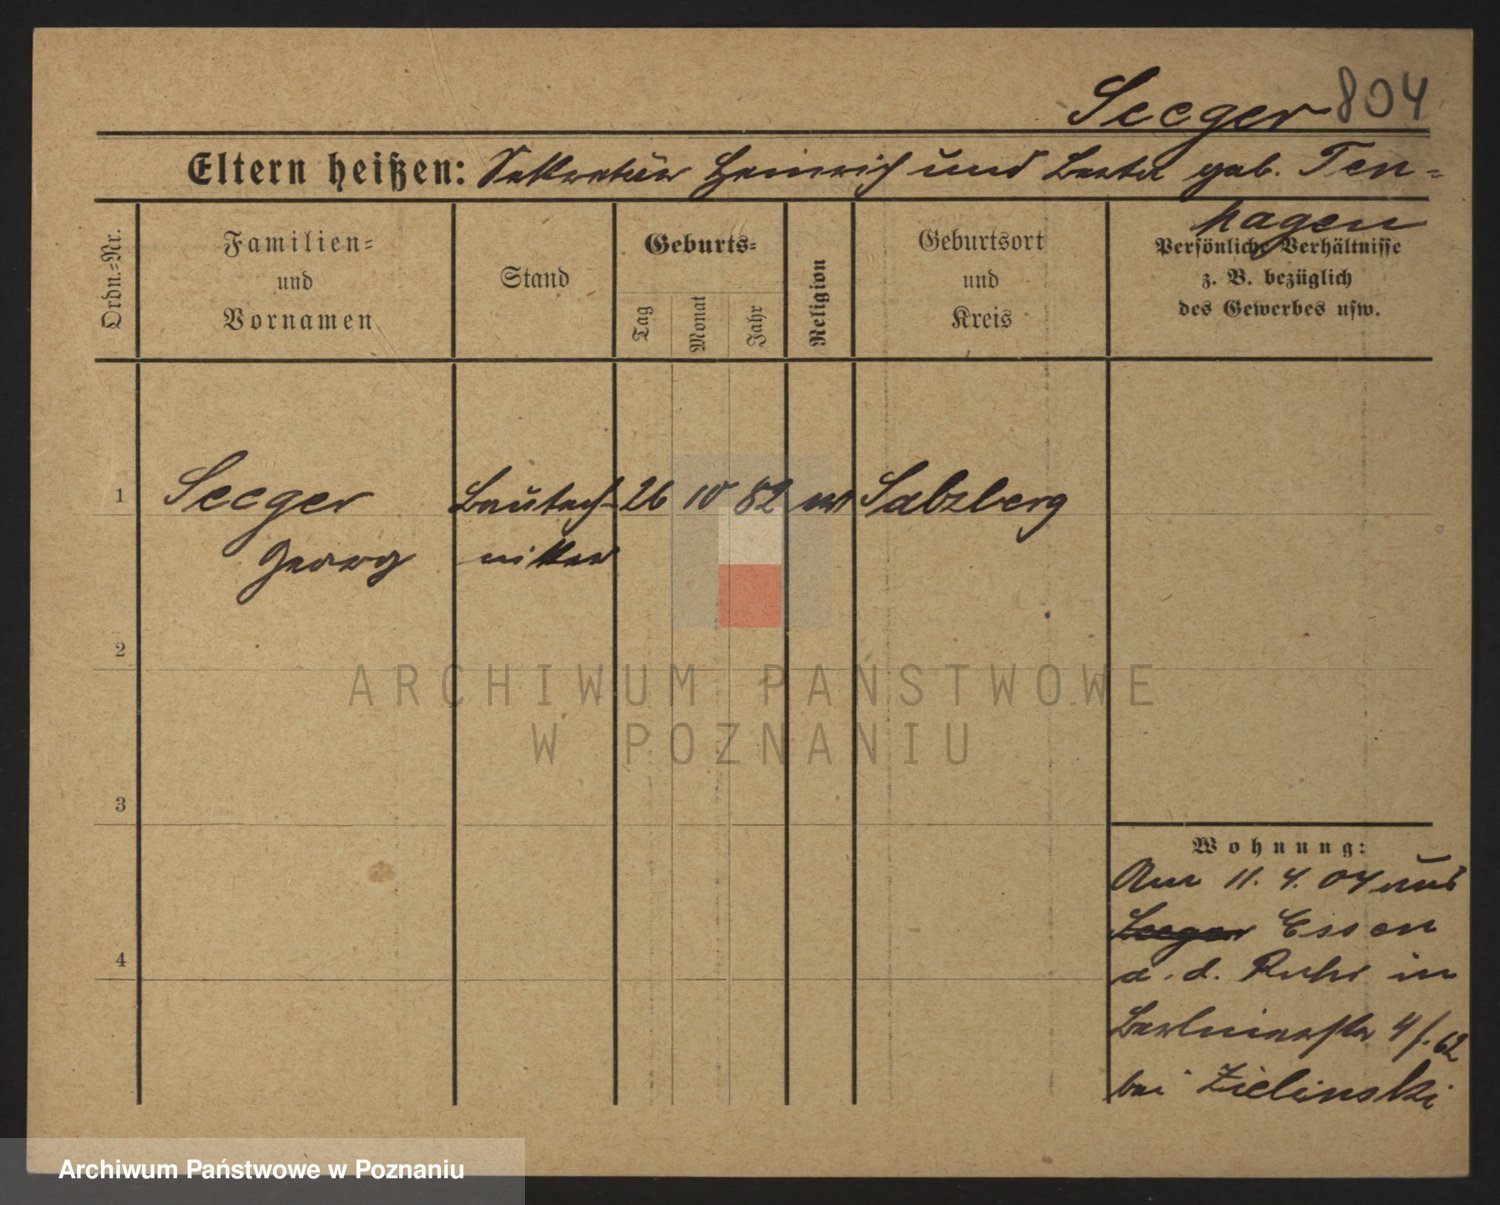 Seeger 804
Eltern heißen: Sekretär Heinrich und Berta geb. Ten-
hagen
Ordn.-Nr.
Familien-
und
Vornamen
Stand
Geburts-
Tag
Monat
Jahr
Religion
Geburtsort
und
Kreis
Persönliche Verhältnisse
z. B. bezüglich
des Gewerbes usw.
1 Seeger Bautech- 26 10 82 Salzberg
Georg niker
2
ARCHIWUM PAŃSTWOWE
W POZNANIU
3
Wohnung:
Am 11. 4. 04 aus
Seeger Essen
4
a. d. Ruhr in
Berlinerstr 4/. 62
bei Zielinski
Archiwum Państwowe w Poznaniu